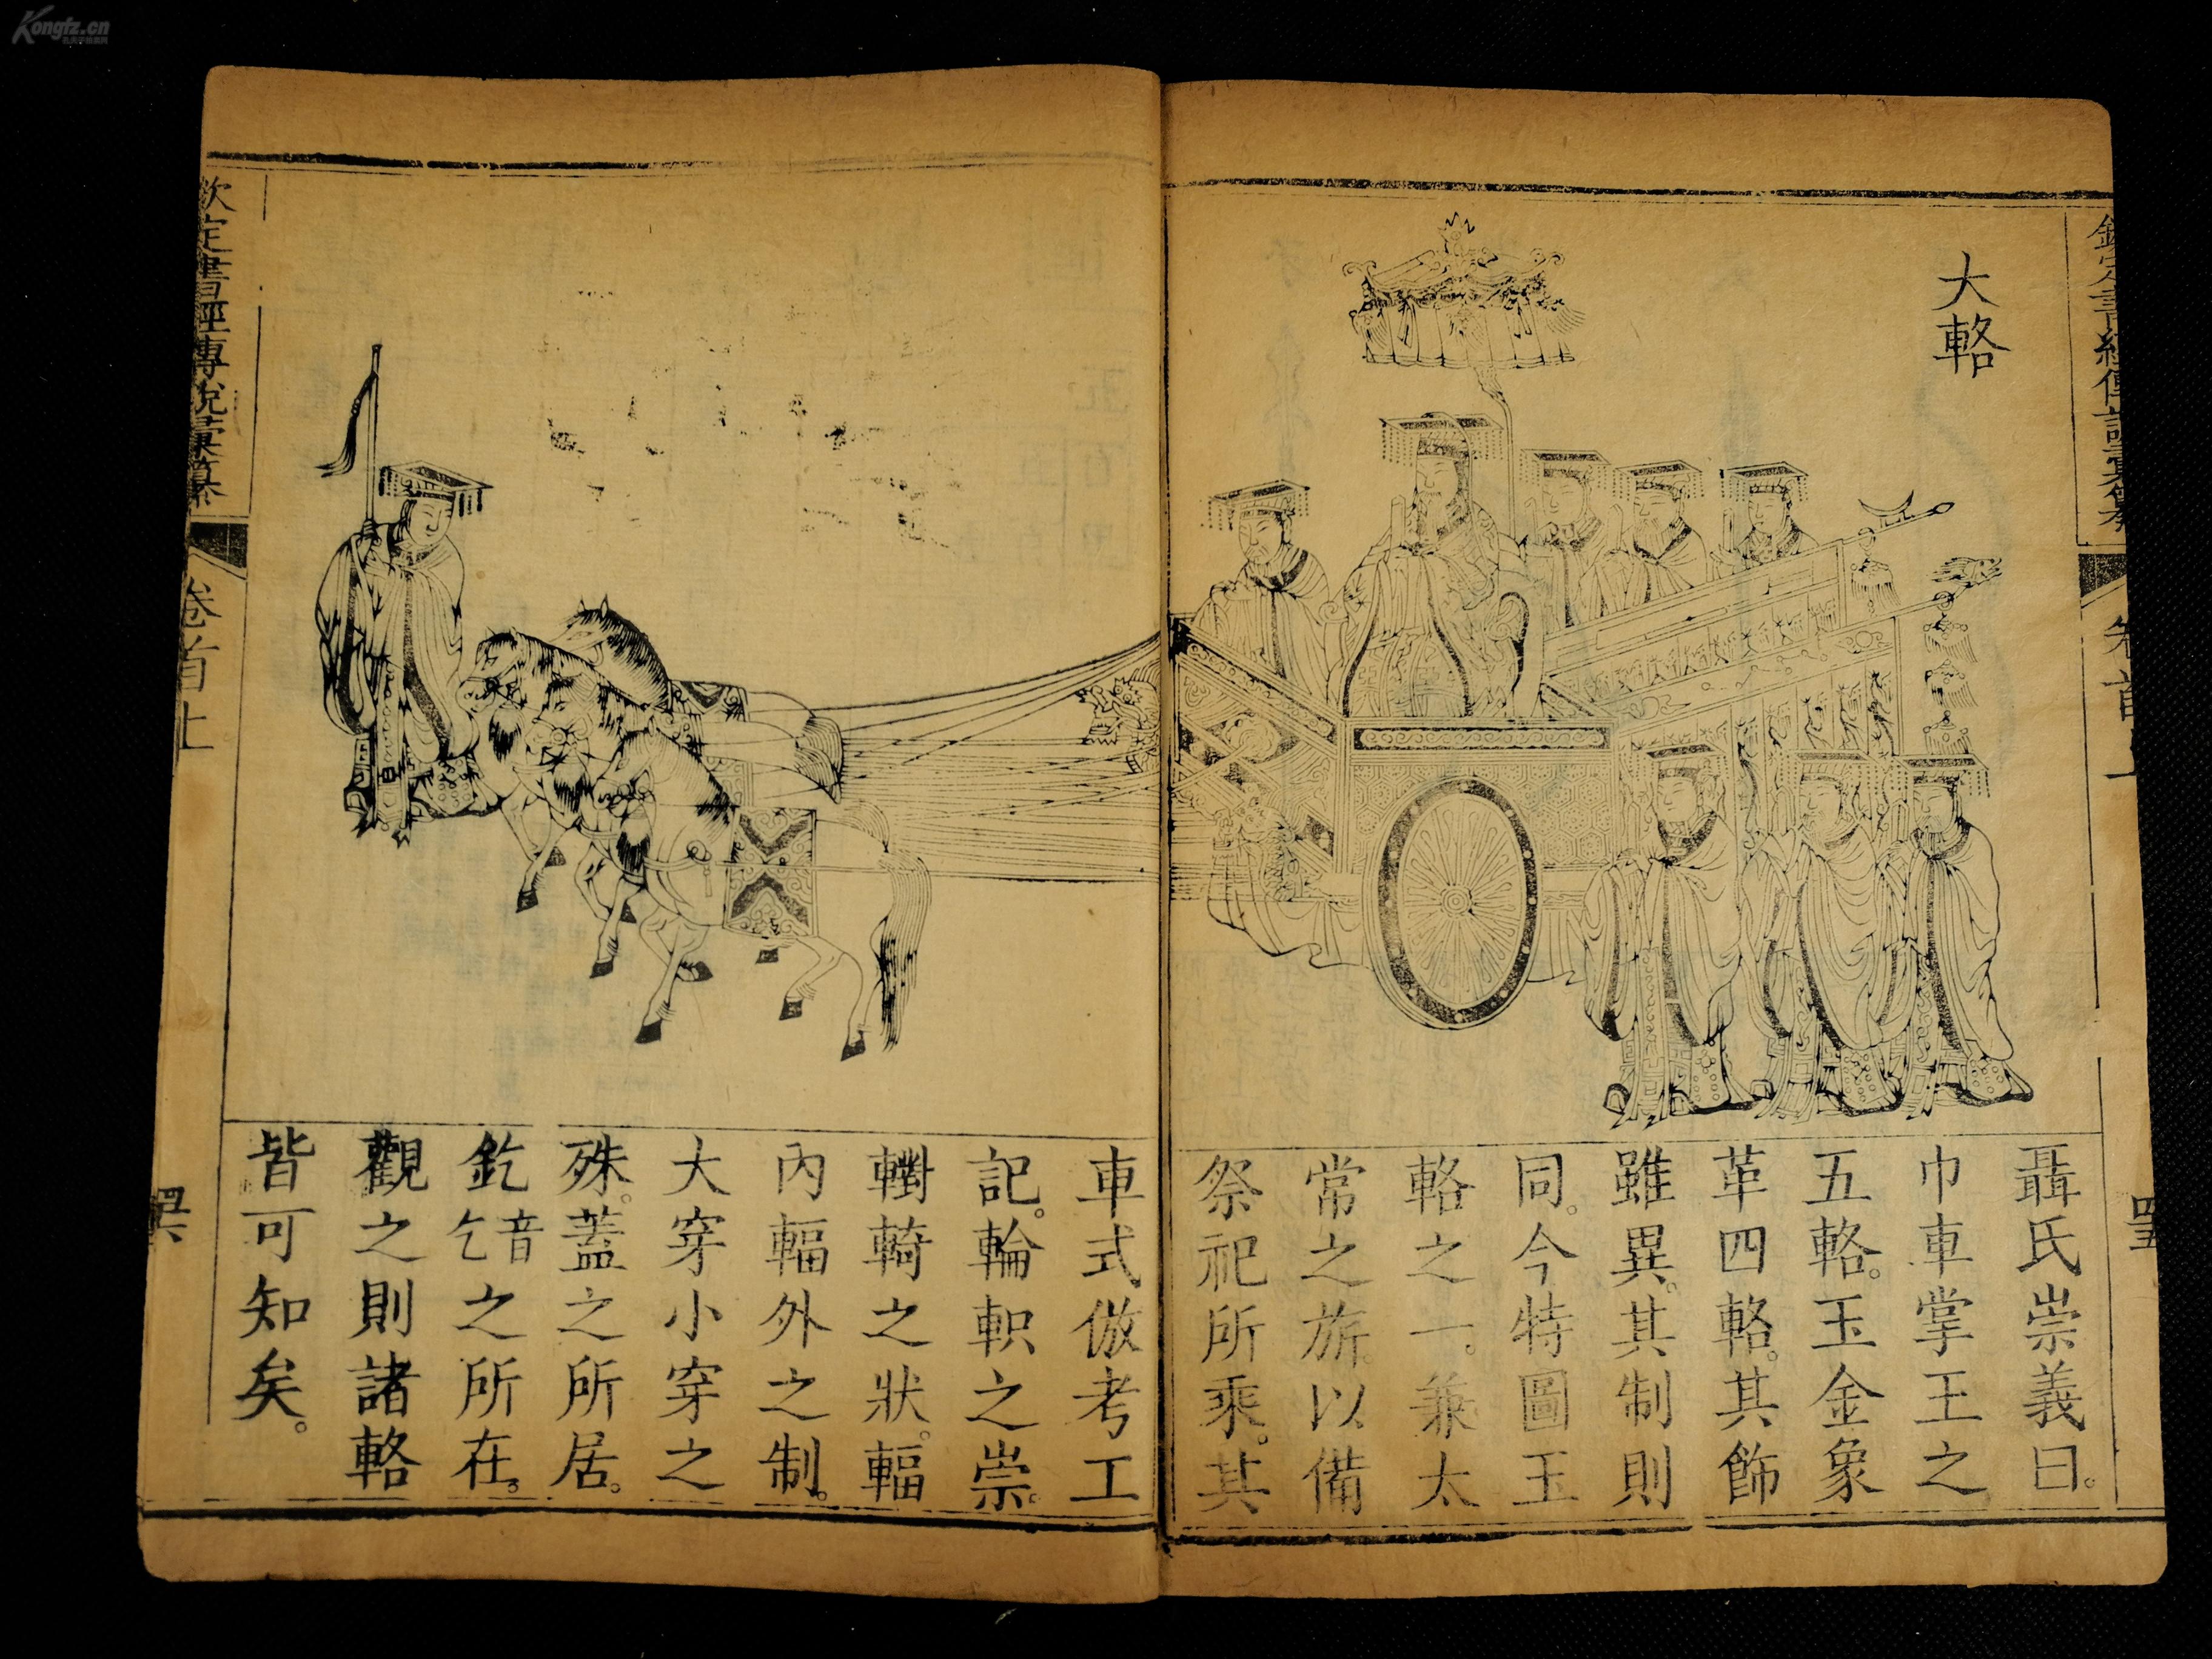 Kongfz.cn
大輅
聶氏崇義曰。
巾車掌王之
五輅。玉金象
革四輅。其飾
雖異。其制則
同。今特圖玉
輅之一。兼太
常之旂。以備
祭祀所乘。其
車式倣考工
記。輪軹之崇。
轛輢之狀。輻
內輻外之制。
大穿小穿之
殊。蓋之所居。
釳音乞之所在。
觀之則諸輅
皆可知矣。
欽定書經傳說彙纂
卷首上